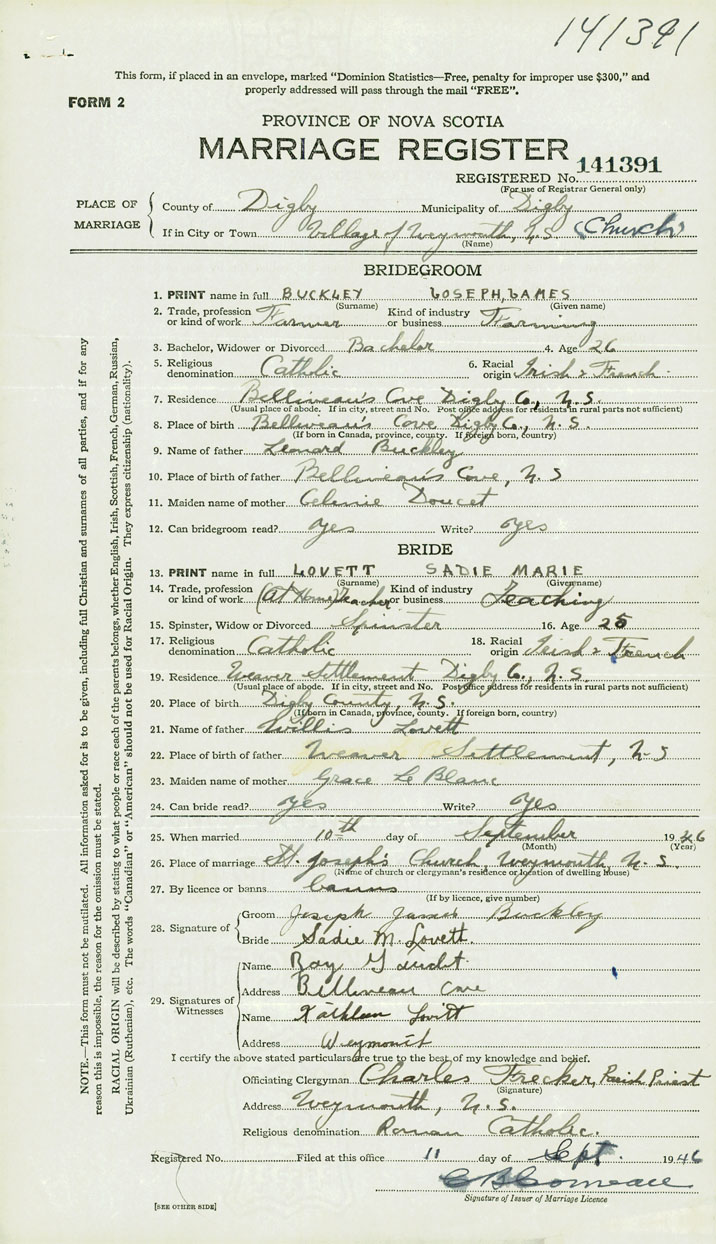 141391
This form, if placed in an envelope, marked "Dominion Statistics—Free, penalty for improper use $300," and
properly addressed will pass through the mail "FREE".
FORM 2
PROVINCE OF NOVA SCOTIA
MARRIAGE REGISTER
REGISTERED No. 141391
(For use of Registrar General only)
PLACE OF MARRIAGE
County of Digby Municipality of Digby
If in City or Town Village of Weymouth, N.S. (Church)
(Name)
BRIDEGROOM
1. PRINT name in full BUCKLEY JOSEPH, JAMES
(Surname) (Given name)
2. Trade, profession or kind of work Farmer Kind of industry or business Farming
3. Bachelor, Widower or Divorced Bachelor 4. Age 26
5. Religious denomination Catholic 6. Racial origin Irish & French
7. Residence Belliveau's Cove Digby Co., N.S.
(Usual place of abode. If in city, street and No. Post office address for residents in rural parts not sufficient)
8. Place of birth Belliveau's Cove Digby Co., N.S.
(If born in Canada, province, county. If foreign born, country)
9. Name of father Leonard Buckley
10. Place of birth of father Belliveau's Cove, N.S
11. Maiden name of mother Celinie Doucet
12. Can bridegroom read? Yes Write? Yes
BRIDE
13. PRINT name in full LOVETT SADIE MARIE
(Surname) (Given name)
14. Trade, profession or kind of work (At Home) Teacher Kind of industry or business Teaching
15. Spinster, Widow or Divorced Spinster 16. Age 25
17. Religious denomination Catholic 18. Racial origin Irish & French
19. Residence Weaver Settlement Digby Co., N.S.
(Usual place of abode. If in city, street and No. Post office address for residents in rural parts not sufficient)
20. Place of birth Digby County, N.S.
(If born in Canada, province, county. If foreign born, country)
21. Name of father Willis Lovett
22. Place of birth of father Weaver Settlement, N-S
23. Maiden name of mother Grace Le Blanc
24. Can bride read? Yes Write? Yes
25. When married 10th day of September 1946
(Month) (Year)
26. Place of marriage St. Joseph's Church, Weymouth, N.S.
(Name of church or clergyman's residence or location of dwelling house)
27. By licence or banns banns
(If by licence, give number)
28. Signature of
Groom Joseph James Buckley
Bride Sadie M. Lovett.
29. Signatures of Witnesses
Name Roy
Address Belliveau Cove
Name Kathleen Lovitt
Address Weymouth
I certify the above stated particulars are true to the best of my knowledge and belief.
Officiating Clergyman Charles Frecker, Parish Priest
(Signature)
Address Weymouth, N.S.
Religious denomination Roman Catholic.
Registered No. Filed at this office 11 day of Sept. 1946
C B Comeau
Signature of Issuer of Marriage Licence
[SEE OTHER SIDE]
NOTE.—This form must not be mutilated. All information asked for is to be given, including full Christian and surnames of all parties, and if for any
reason this is impossible, the reason for the omission must be stated.
RACIAL ORIGIN will be described by stating to what people or race each of the parents belongs, whether English, Irish, Scottish, French, German, Russian,
Ukrainian (Ruthenian), etc. The words "Canadian" or "American" should not be used for Racial Origin. They express citizenship (nationality).